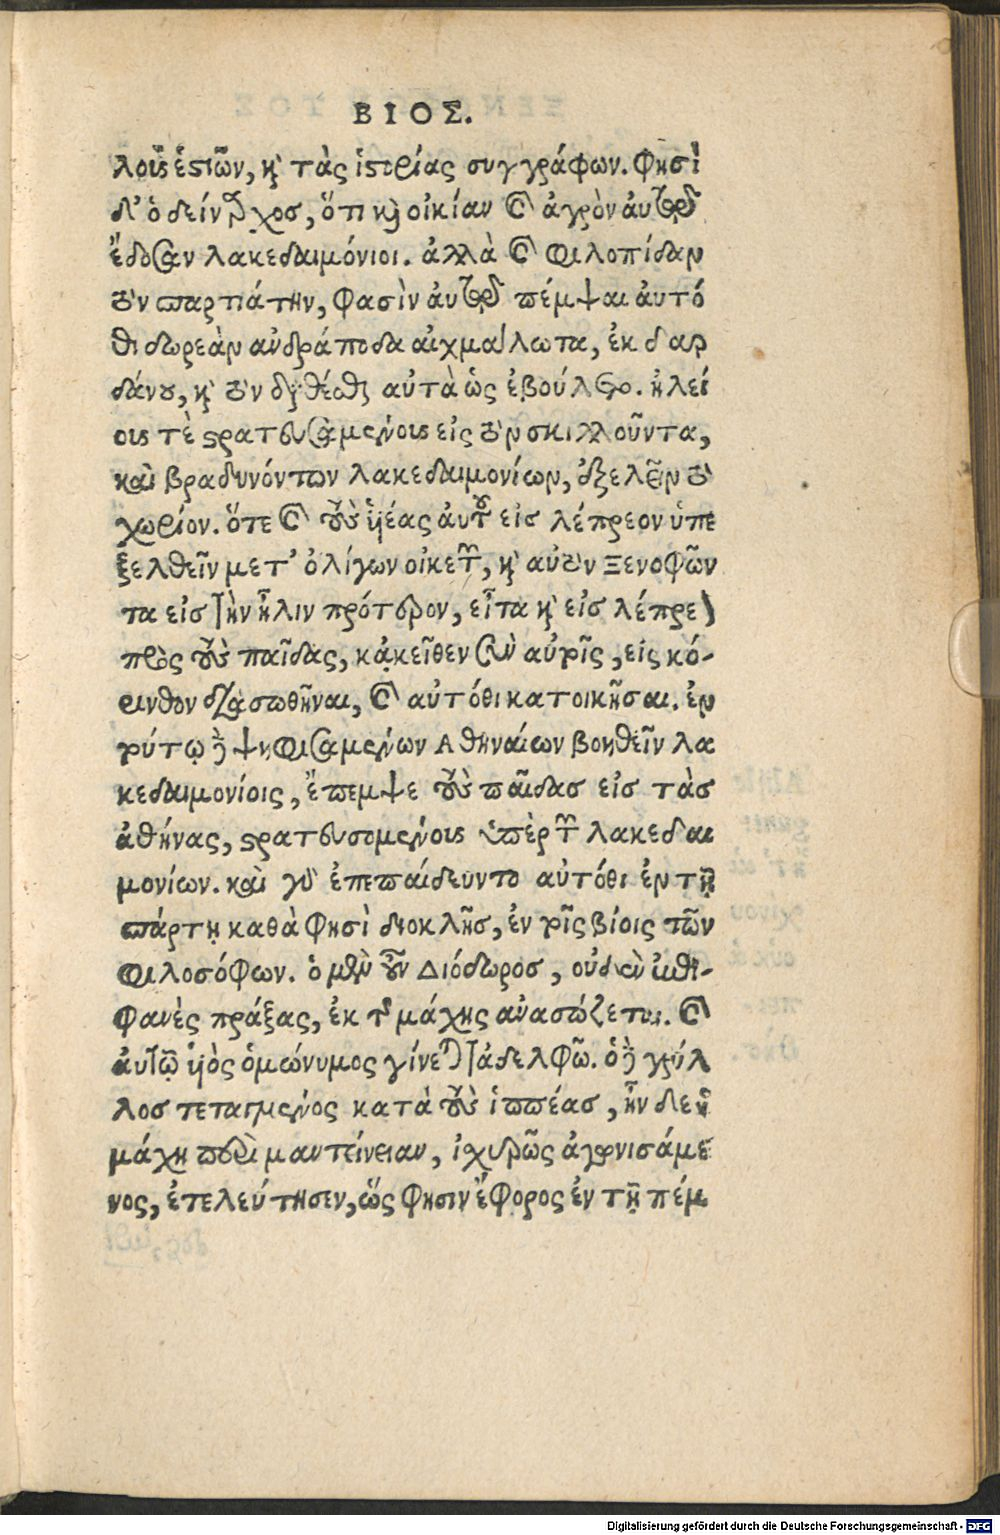 ΒΙΟΣ.
λους ἑστιῶν, καὶ τὰς ἱστορίας συγγράφων. Φησὶ
δ' ὁ δείναρχος, ὅτι καὶ οἰκίαν καὶ ἀγρὸν ἀυτῷ
ἔδοσαν λακεδαιμόνιοι. ἀλλὰ καὶ Φιλοπίδαν
τὸν σπαρτιάτην, φασὶν ἀυτῷ πέμψαι ἀυτό
θι δωρεὰν ἀνδράποδα αἰχμαλωτα, ἐκ δαρ
δάνου, καὶ τὸν διαθέσθαι αὐτὰ ὡς ἐβούλετο. ἠλεί
ους τὲ στρατευσαμένους εἰς τὸν σκιλλοῦντα,
καὶ βραδυνόντων λακεδαιμονίων, ἐξελεῖν τὸ
χωρίον. ὅτε καὶ τοὺς ὑιέας ἀυτοῦ εἰς λέπρεον ὑπε
ξελθεῖν μετ' ὀλίγων οἰκετῶν, καὶ αὐτὸν Ξενοφῶν
τα εἰς τὴν ἦλιν πρότερον, εἶτα καὶ εἰς λέπρεον
πρὸς τοὺς παῖδας, κᾀκεῖθεν σὺν αὐτοῖς, εἰς κό-
ρινθον διασωθῆναι, καὶ αὐτόθι κατοικῆσαι. ἐν
τούτῳ δὲ ψηφισαμένων Ἀθηναίων βοηθεῖν λα
κεδαιμονίοις, ἔπεμψε τοὺς παῖδας εἰς τὰς
ἀθήνας, στρατευσομένους ὑπὲρ τῶν λακεδαι
μονίων. καὶ γὰρ ἐπεπαίδευντο αὐτόθι ἐν τῇ
σπάρτῃ καθὰ φησὶ διοκλῆς, ἐν τοῖς βίοις τῶν
Φιλοσόφων. ὁ μὲν οὖν Διόδωρος, οὐδὲν ἐπι-
φανὲς πράξας, ἐκ τῆς μάχης ἀνασώζεται. καὶ
ἀυτῷ ὑιὸς ὁμώνυμος γίνεται τἀδελφῶ. ὁ δὲ γρύλ
λος τεταγμένος κατὰ τοὺς ἱππέας, ἦν δὲ ἡ
μάχη περὶ μαντίνειαν, ἰσχυρῶς ἀγωνισάμε
νος, ἐτελεύτησεν, ὥς φησιν ἔφορος ἐν τῇ πέμ
Digitalisierung gefördert durch die Deutsche Forschungsgemeinschaft - DFG